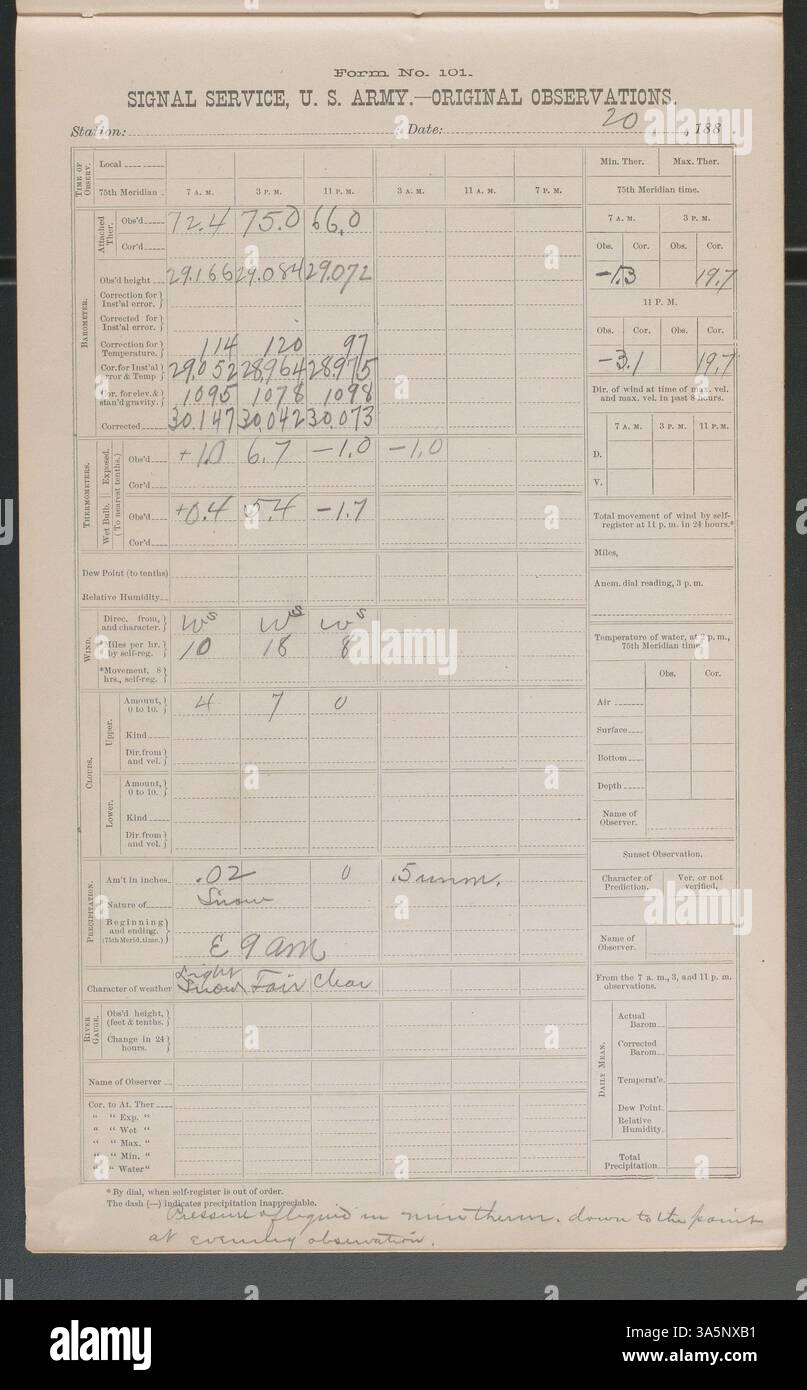 Form No. 101.
SIGNAL SERVICE, U. S. ARMY.—ORIGINAL OBSERVATIONS.
Station: Date: 20 , 188 .
TIME OF OBSERV.
Local
75th Meridian 7 A. M. 3 P. M. 11 P. M. 3 A. M. 11 A. M. 7 P. M.
BAROMETER.
Attached Ther.
Obs'd 72.4 75.0 66.0
Cor'd
Obs'd height 29.166 29.084 29.072
Correction for Inst'al error.
Corrected for Inst'al error.
Correction for Temperature. 114 120 97
Cor. for Inst'al error & Temp 29.052 28.964 28.975
Cor. for elev. & stan'd gravity. 1095 1078 1098
Corrected 30.147 30.042 30.073
THERMOMETERS.
(To nearest tenths.)
Exposed.
Obs'd +1.0 6.7 -1.0 -1.0
Cor'd
Wet Bulb.
Obs'd +0.4 5.4 -1.7
Cor'd
Dew Point (to tenths)
Relative Humidity
WIND.
Direc. from, and character. Ws Ws Ws
*Miles per hr. by self-reg. 10 18 8
*Movement, 8 hrs., self-reg.
CLOUDS.
Upper.
Amount, 0 to 10. 4 7 0
Kind
Dir. from and vel.
Lower.
Amount, 0 to 10.
Kind
Dir. from and vel.
PRECIPITATION.
Am't in inches .02 0
Nature of Snow
Beginning and ending. (75th Merid. time.) E 9 am
Character of weather Light Snow Fair Clear
RIVER GAUGE.
Obs'd height, (feet & tenths.
Change in 24 hours.
Name of Observer
Cor. to At. Ther
" " Exp. "
" " Wet "
" " Max. "
" " Min. "
" " Water "
Min. Ther. Max. Ther.
75th Meridian time.
7 A. M. 3 P. M.
Obs. Cor. Obs. Cor.
-1.3 19.7
11 P. M.
Obs. Cor. Obs. Cor.
-3.1 19.7
Dir. of wind at time of max. vel. and max. vel. in past 8 hours.
7 A. M. 3 P. M. 11 P. M.
D.
V.
Total movement of wind by self-register at 11 p. m. in 24 hours.*
Miles,
Anem. dial reading, 3 p. m.
Temperature of water, at 3 p. m., 75th Meridian time.
Obs. Cor.
Air
Surface
Bottom
Depth
Name of Observer.
Sunset Observation.
Character of Prediction. Ver. or not verified.
Name of Observer.
From the 7 a. m., 3, and 11 p. m. observations.
DAILY MEAN.
Actual Barom
Corrected Barom
Temperat'e.
Dew Point.
Relative Humidity.
Total Precipitation
* By dial, when self-register is out of order.
The dash (—) indicates precipitation inappreciable.
Pressure of liquid in min therm. down to the point
at evening observation.
alamy
Image ID: 3A5NXB1
www.alamy.com